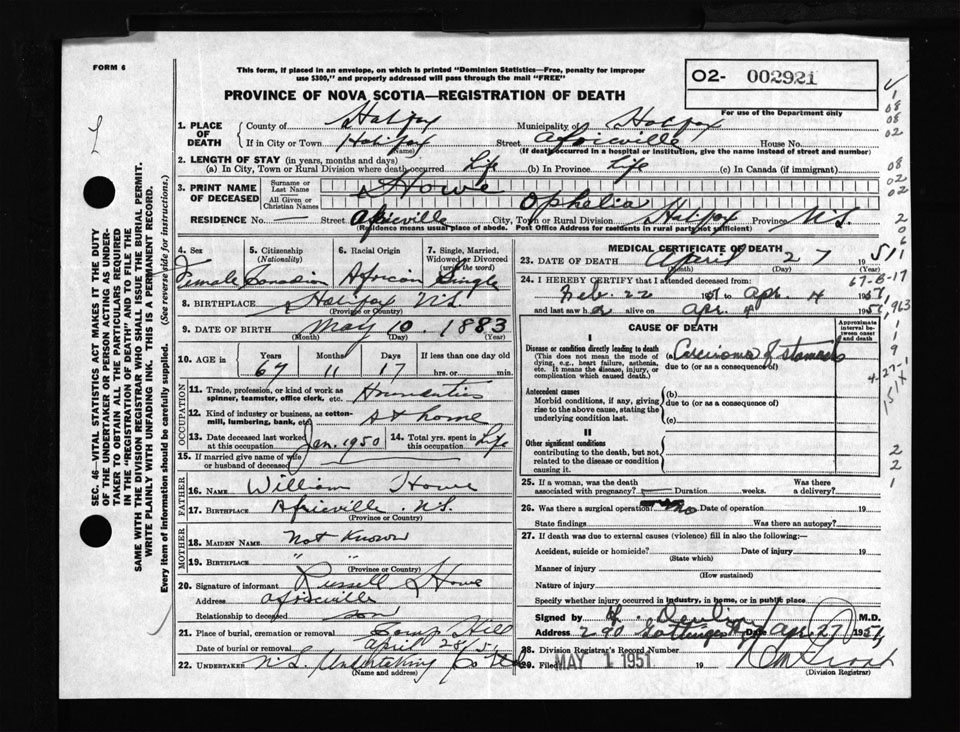 FORM 6
This form, if placed in an envelope, on which is printed "Dominion Statistics—Free, penalty for improper
use $300," and properly addressed will pass through the mail "FREE"
O2- 002921
PROVINCE OF NOVA SCOTIA—REGISTRATION OF DEATH
For use of the Department only
1. PLACE OF DEATH County of Halifax Municipality of Halifax
If in City or Town Halifax Street Africville House No.
(Name) (If death occurred in a hospital or institution, give the name instead of street and number)
2. LENGTH OF STAY (in years, months and days)
(a) In City, Town or Rural Division where death occurred Life (b) In Province Life (c) In Canada (if immigrant)
3. PRINT NAME OF DECEASED Surname or Last Name Howe
All Given or Christian Names Ophelia
RESIDENCE No. — Street Africville City, Town or Rural Division Halifax Province N.S.
(Residence means usual place of abode. Post Office Address for residents in rural parts not sufficient)
4. Sex Female
5. Citizenship (Nationality) Canadian
6. Racial Origin African
7. Single, Married, Widowed or Divorced (write the word) Single
8. BIRTHPLACE Halifax N.S.
(Province or Country)
9. DATE OF BIRTH May 10. 1883
(Month) (Day) (Year)
10. AGE in Years 67 Months 11 Days 17 If less than one day old
hrs. or min.
OCCUPATION
11. Trade, profession, or kind of work as spinner, teamster, office clerk, etc.
12. Kind of industry or business, as cotton-mill, lumbering, bank, etc. At home
13. Date deceased last worked at this occupation Jan. 1950 14. Total yrs. spent in this occupation Life
15. If married give name of wife or husband of deceased —
FATHER
16. NAME William Howe
17. BIRTHPLACE Africville N.S.
(Province or Country)
MOTHER
18. MAIDEN NAME Not Known
19. BIRTHPLACE " "
(Province or Country)
20. Signature of informant Russell Howe
Address Africville
Relationship to deceased son
21. Place of burial, cremation or removal Camp Hill
Date of burial or removal April 28/51
22. UNDERTAKER N.S. Undertaking Co Ltd
(Name and address)
MEDICAL CERTIFICATE OF DEATH
23. DATE OF DEATH April 27 1951
(Month) (Day) (Year)
24. I HEREBY CERTIFY that I attended deceased from
Feb. 22 1951 to Apr. 4 1951
and last saw her alive on Apr. 4 1951
CAUSE OF DEATH
Approximate interval between onset and death
I
Disease or condition directly leading to death
(This does not mean the mode of dying, e.g., heart failure, asthenia, etc. It means the disease, injury, or complication which caused death.)
(a) Carcinoma of stomach
due to (or as a consequence of)
Antecedent causes
Morbid conditions, if any, giving rise to the above cause, stating the underlying condition last.
(b)
due to (or as a consequence of)
(c)
II
Other significant conditions
contributing to the death, but not related to the disease or condition causing it.
25. If a woman, was the death associated with pregnancy? — Duration weeks. Was there a delivery?
26. Was there a surgical operation? no Date of operation 19
State findings Was there an autopsy?
27. If death was due to external causes (violence) fill in also the following:—
Accident, suicide or homicide? Date of injury 19
(State which)
Manner of injury
(How sustained)
Nature of injury
Specify whether injury occurred in industry, in home, or in public place
Signed by M.D.
Address 290 Gottingen St Date Apr. 27 1951
28. Division Registrar's Record Number
29. Filed MAY 1 1951 19
(Division Registrar)
SEC. 46—VITAL STATISTICS ACT MAKES IT THE DUTY
OF THE UNDERTAKER OR PERSON ACTING AS UNDER-
TAKER TO OBTAIN ALL THE PARTICULARS REQUIRED
IN THE "REGISTRATION OF DEATH" AND TO FILE THE
SAME WITH THE DIVISION REGISTRAR WHO SHALL ISSUE THE BURIAL PERMIT.
WRITE PLAINLY WITH UNFADING INK. THIS IS A PERMANENT RECORD.
Every item of information should be carefully supplied. (See reverse side for instructions.)